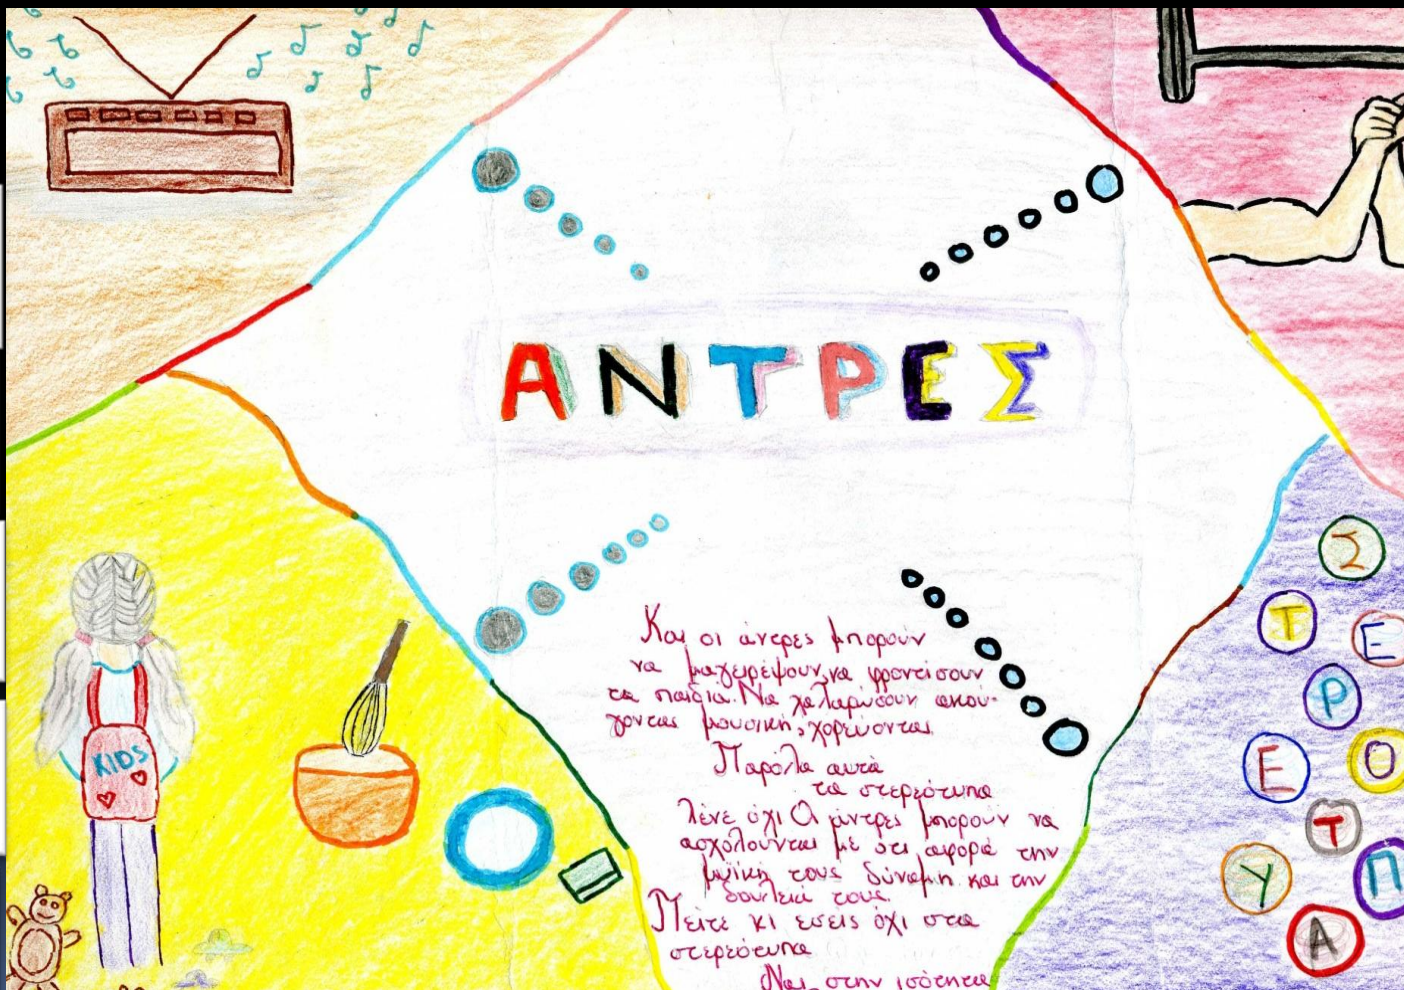 ΑΝΤΡΕΣ
Και οι άντρες μπορούν
να μαγειρέψουν, να φροντίσουν
τα παιδιά. Να χαλαρώσουν ακού-
γοντας μουσική, χορεύοντας
Παρόλα αυτά
τα στερεότυπα
λένε όχι Οι άντρες μπορούν να
ασχολούνται με ότι αφορά την
μυϊκή τους δύναμη και την
δουλειά τους.
Πείτε κι εσείς όχι στα
στερεότυπα
Ναι στην ισότητα
KIDS
Σ
Τ
Ε
Ρ
Ε
Ο
Τ
Υ
Π
Α